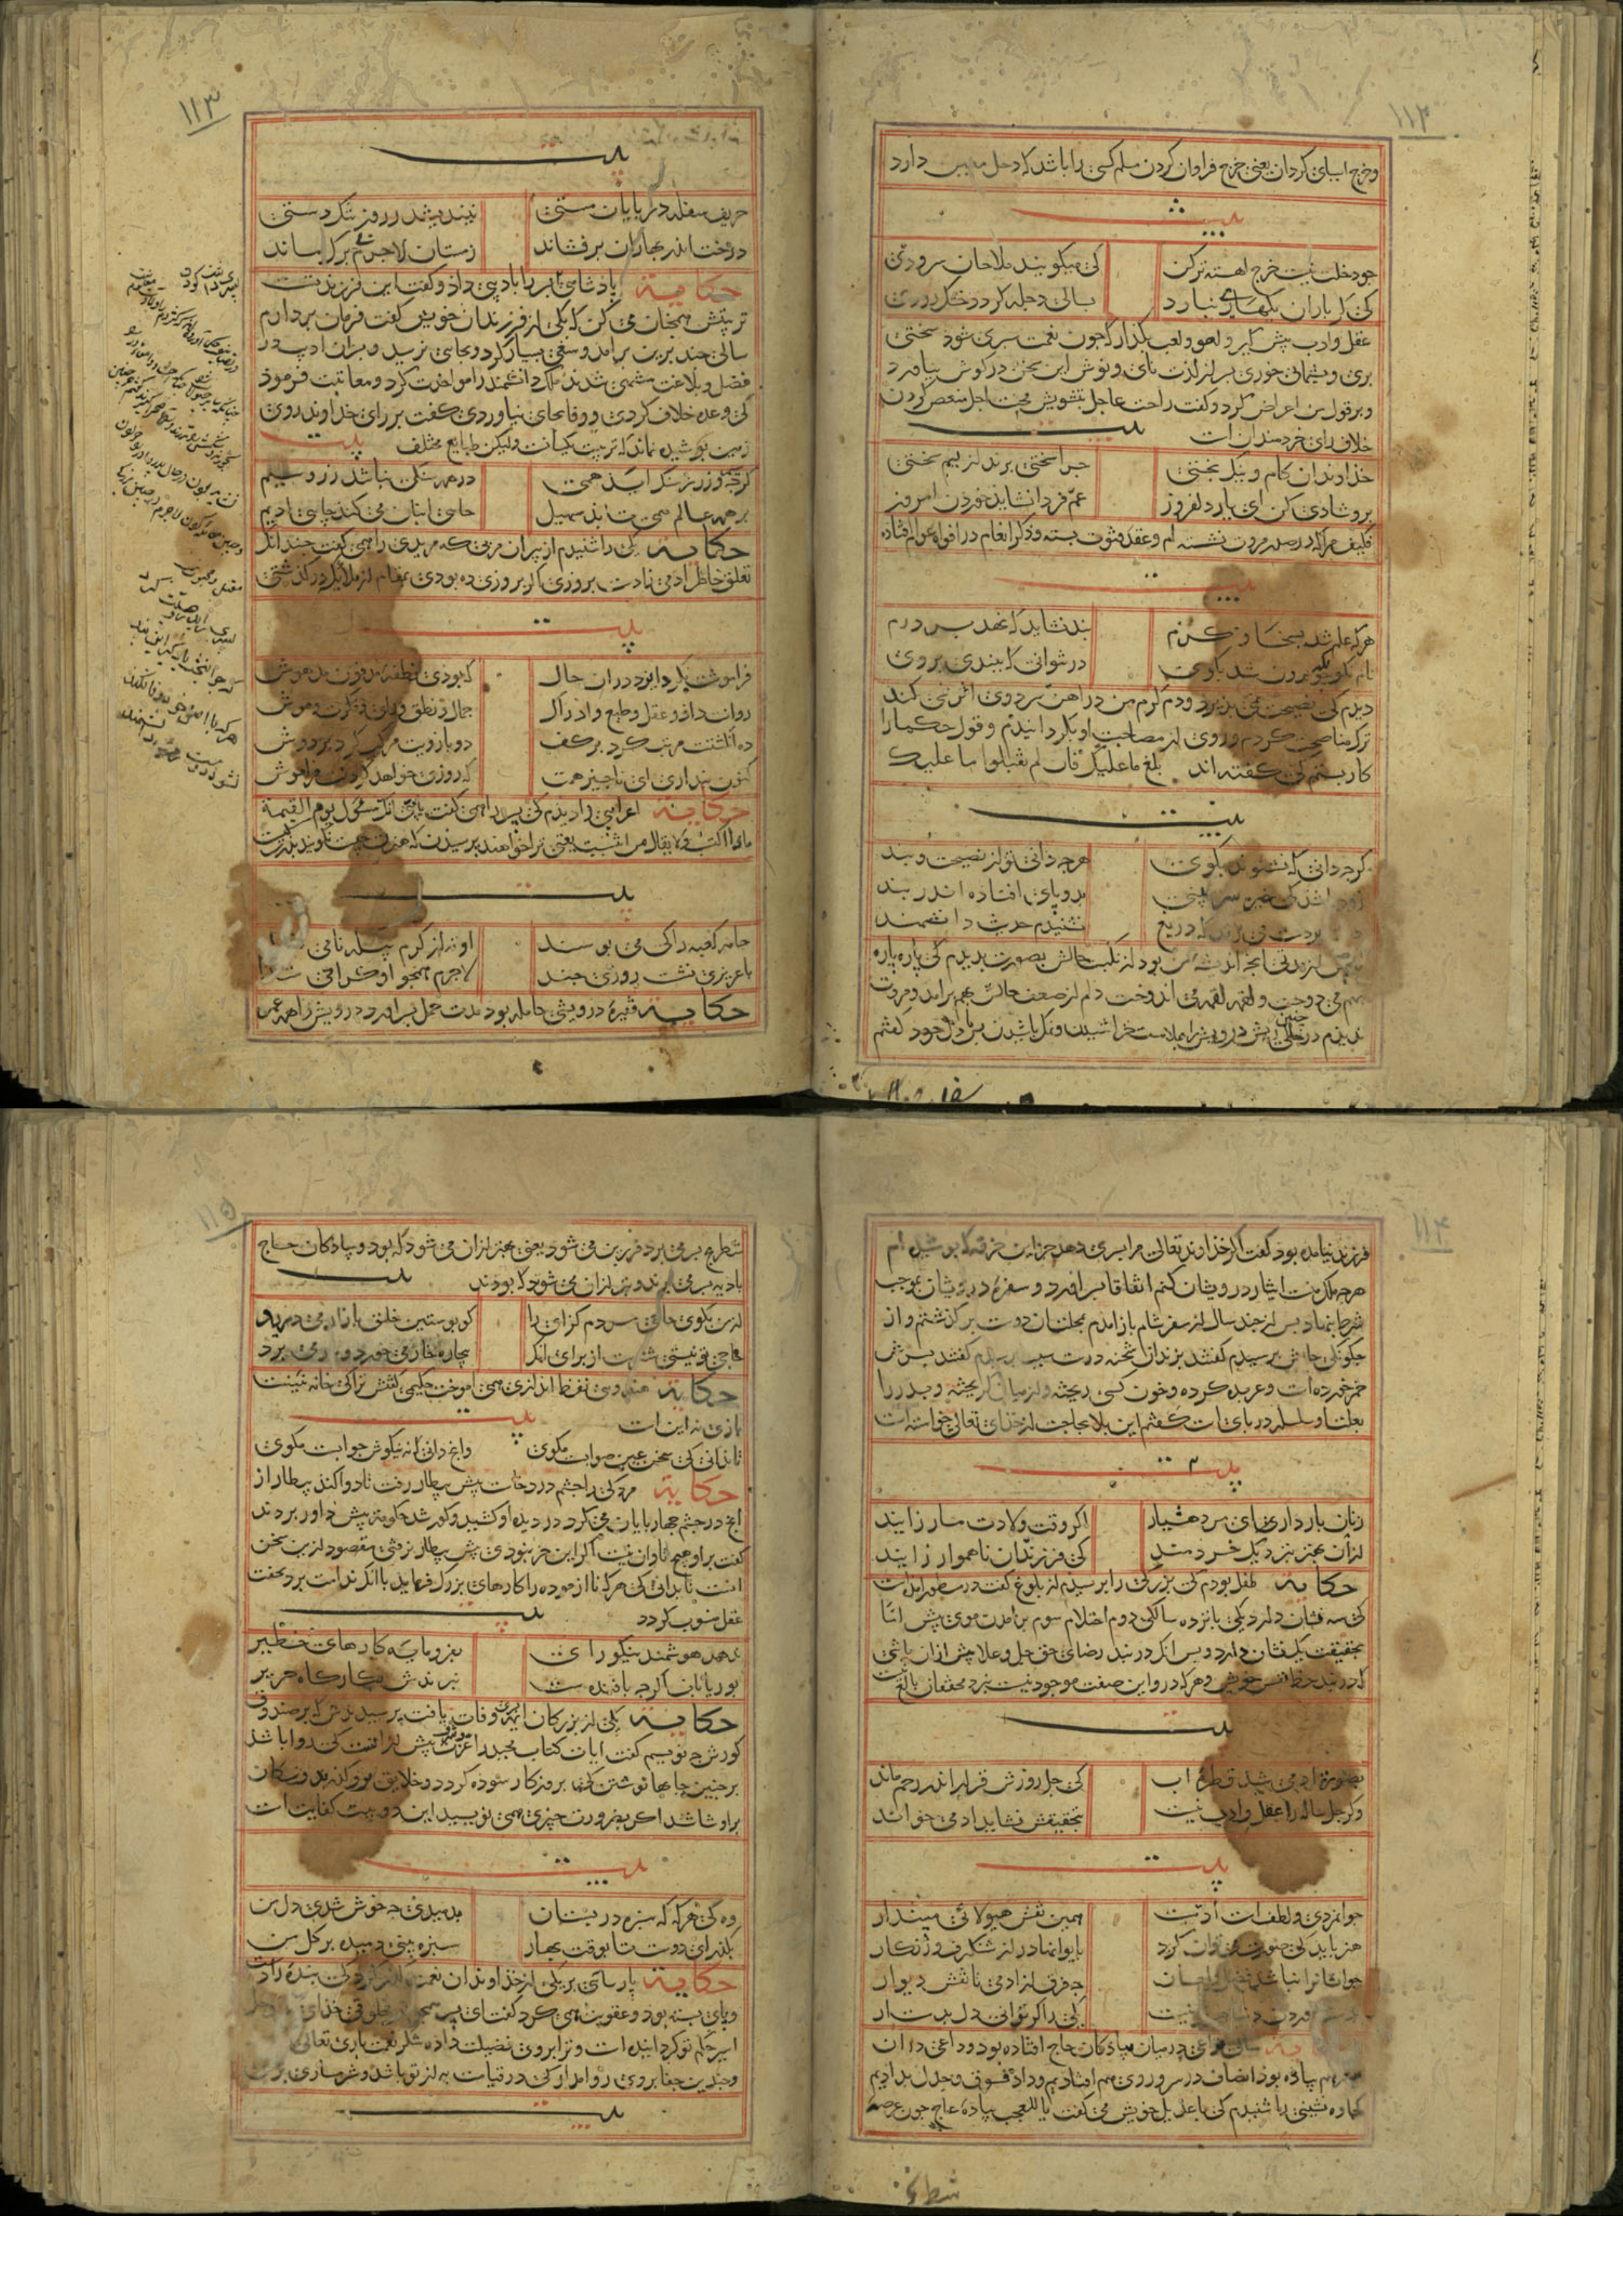 ١١٢
و خرج اسیای کردان یعنی خرج فراوان کردن مسلم کسی را باشد که دخل معین دارد
بیت
جو دخلت نیست خرج اهسته تر کن
کی میکویند ملاحان سرودی
کی کر باران بکهساری نبارد
بسالی دجله کردد خشک رودی
عقل و ادب پیش کیر و لهو و لعب بکذار که جون نعمت سپری شود سختی
بری و پشیمانی خوری پسر از لذت نای و نوش این سخن در کوش نیاورد
و بر قول من اعراض کرد و کفت راحت عاجل بتشویش محنت اجل منغص کردن
خلاف رای خردمندان است
بیت
خداوندان کام و نیک بختی
جرا سختی برند از بیم سختی
برو شادی کن ای یار دلفروز
غم فردا نشاید خوردن امروز
فکیف مرا که در صدر مروت نشسته ام و عقد فتوت بسته و ذکر انعام در افواه عوام افتاده
بیت
هر که علم شد بسخا و کرم
بند نشاید که نهد بر درم
نام نکو جو برون شد بکوی
در نتوانی که ببندی بروی
دیدم کی نصیحت نمی پذیرد و دم کرم من در اهن سرد وی اثر نمی کند
ترک مناصحت کردم و روی از مصاحبت او بکردانیدم و قول حکما را
کار بستم کی کفته اند بلغ ما علیک فان لم یقبلوا ما علیک
بیت
کرجه دانی که نشنوند بکوی
هرجه دانی تو از نصیحت و پند
زود باشد کی خیره سر بینی
بدو پای افتاده اندر بند
دست بر دست می زند که دریغ
نشنیدم حدیث دانشمند
پس از مدتی انجه اندیشه من بود از نکبت حالش بصورت بدیدم کی پاره پاره
بهم می دوخت و لقمه لقمه می اندوخت دلم از ضعف حالش بهم برامد و مروت
ندیدم در چنین حالی ریش درویش را بملامت خراشیدن و نمک پاشیدن پس با دل خود کفتم
١١٣
بیت
حریف سفله در پایان مستی
نیندیشد ز روز تنک دستی
درخت اندر بهاران بر فشاند
زمستان لاجرم بی برک ماند
حکایة پادشاهی پسر را بادیبی داد و کفت این فرزند تست
تربیتش همجنان می کن که یکی از فرزندان خویش کفت فرمان بردارم
سالی جند برین برامد و سعی بسیار کرد و بجای نرسید و پسران ادیب در
فضل و بلاغت منتهی شدند ملک دانشمند را مواخذت کرد و معاتبت فرمود
کی وعده خلاف کردی و وفا بجای نیاوردی کفت بر رای خداوند روی
زمین پوشیده نماند که تربیت یکسانست ولیکن طبایع مختلف
بیت
کرجه سیم و زر ز سنک اید همی
در همه سنکی نباشد زر و سیم
بر همه عالم همی تابد سهیل
جای انبان می کند جای ادیم
حکایة یکی را شنیدم از پیران مربی که مریدی را همی کفت جندانک
تعلق خاطر ادمی زادست بروزی اکر بروزی ده بودی بمقام از ملایکه در کذشتی
بیت
فراموشت نکرد ایزد دران حال
که بودی نطفهٔ مدفون مدهوش
روانت داد و عقل و طبع و ادراک
جمال و نطق و رای و فکرت و هوش
ده انکشتت مرتب کرد بر کف
دو بازویت مرکب کرد بر دوش
کنون پنداری ای ناچیز همت
که روزی خواهد کردن فراموش
حکایة اعرابی را دیدم کی پسر را همی کفت یا بنی انک مسؤل یوم القیمة
ماذا اکتسبت و لا یقال بمن انتسبت یعنی ترا خواهند پرسیدن که هنرت چیست نکویند پدرت کیست
بیت
جامه کعبه را کی می بوسند
او نه از کرم پیله نامی شد
با عزیزی نشست روزی جند
لاجرم همجو او کرامی شد
حکایة فقیرهٔ درویشی حامله بود مدت حمل بسر اورد درویش را همه عمر
١١٤
فرزند نیامده بود کفت اکر خداوند تعالی مرا پسری دهد جز این خرقه که پوشیده ام
هرجه ملک منست ایثار درویشان کنم اتفاقا پسر اورد و سفرهٔ درویشان بموجب
شرط بنهاد پس از جند سال از سفر شام باز امدم بمحلت ان دوست بر کذشتم و از
جکونکی حالش پرسیدم کفتند بزندان شحنه درست سبب پرسیدم کفتند پسرش
خمر خورده است و عربده کرده و خون کسی ریخته و از میان کریخته و پدر را
بعلت او سلسله در پای است کفتم این بلا بحاجت از خدای تعالی خواسته است
بیت
زنان باردار ای مرد هشیار
اکر وقت ولادت مار زایند
ازان بهتر بنزدیک خردمند
کی فرزندان ناهموار زایند
حکایة طفل بودم کی بزرکی را پرسیدم از بلوغ کفت در مسطور امده است
کی سه نشان دارد یکی پانزده سالکی دوم احتلام سوم برامدن موی پیش اما
بحقیقت یک نشان دارد و بس انک در بند رضای حق جل و علا بیش ازان باشی
که در بند حظ نفس خویش و هر که درو این صفت موجود نیست بنزد محققان بالغ نیست
بیت
بصورة ادمی شد قطرهٔ اب
کی چل روزش قرار اندر رحم ماند
و کر چل ساله را عقل و ادب نیست
بتحقیقش نشاید ادمی خواند
بیت
جوانمردی و لطفست ادمیت
همین نقش هیولائی مپندار
هنر باید کی صورت می توان کرد
بایوانها در از شنکرف و زنکار
جو انسان را نباشد فضل و احسان
چه فرق از ادمی تا نقش دیوار
یکی را کر توانی دل بدست ار
حکایة سالی نزاعی در میان پیادکان حاج افتاده بود و داعی دران
سفر هم پیاده بود انصاف در سر و روی هم افتادیم و داد فسوق و جدل بدادیم
کجاوه نشینی را شنیدم کی با عدیل خویش می کفت یا للعجب پیادهٔ عاج جون عرصهٔ
شطرنج
١١٥
شطرنج بسر می برد فرزین می شود یعنی بهتر ازان می شود که بود و پیادکان حاج
بادیه بسر می برند و بتر ازان می شود که بودند
بیت
از من بکوی حاجی مردم کزای را
کو پوستین خلق بازار می درد
حاجی تو نیستی شترست از برای انک
بیچاره خار می خورد و بار می برد
حکایة هندوی نفط اندازی همی اموخت حکیمی کفتش ترا کی خانه نیینست
بازی نه اینست
بیت
تا ندانی کی سخن عین صوابست مکوی
وانچ دانی که نه نیکوش جوابست مکوی
حکایة مردکی را جشم درد خاست پیش بیطار رفت تا دوا کند بیطار از
انچ در جشم چهارپایان می کرد در دیده او کشید و کور شد حکومة پیش داور بردند
کفت بر او هیچ تاوان نیست اکر این خر نبودی پیش بیطار نرفتی مقصود ازین سخن
انست تا بدانی کی هر که نا ازموده را کارهای بزرک فرماید با انک ندامت برد بخفت
عقل منسوب کردد
بیت
ندهد هوشمند نیکو رای
بفرومایه کارهای خطیر
بوریا باف اکرجه بافنده ست
نبرندش بکارکاه حریر
حکایة یکی از بزرکان ایمه را پسری وفات یافت پرسیدندش که بر صندوق
کورش چه نویسیم کفت ایات کتاب مجید را عزت و شرف بیش ازانست کی روا باشد
بر جنین جایها نوشتن کی بروزکار سوده کردد و خلایق برو کذرند و سکان
برو شاشند اکر بضرورت چیزی همی نویسید این دو بیت کفایت است
بیت
وه کی هر که که سبزه در بستان
بدمیدی چه خوش شدی دل من
بکذر ای دوست تا بوقت بهار
سبزه بینی دمیده بر کل من
حکایة پارسای بر یکی از خداوندان نعمت کذر کرد کی بندهٔ را دست
و پای بسته بود و عقوبت همی کرد کفت ای پسر همجو تو مخلوقی خدای عز و جل
اسیر حکم تو کردانیده است و ترا بر وی فضیلت داده شکر نعمت باری تعالی
و چندین جفا بر وی روا مدار کی در قیامت به از تو باشد و شرمساری بری
بیت